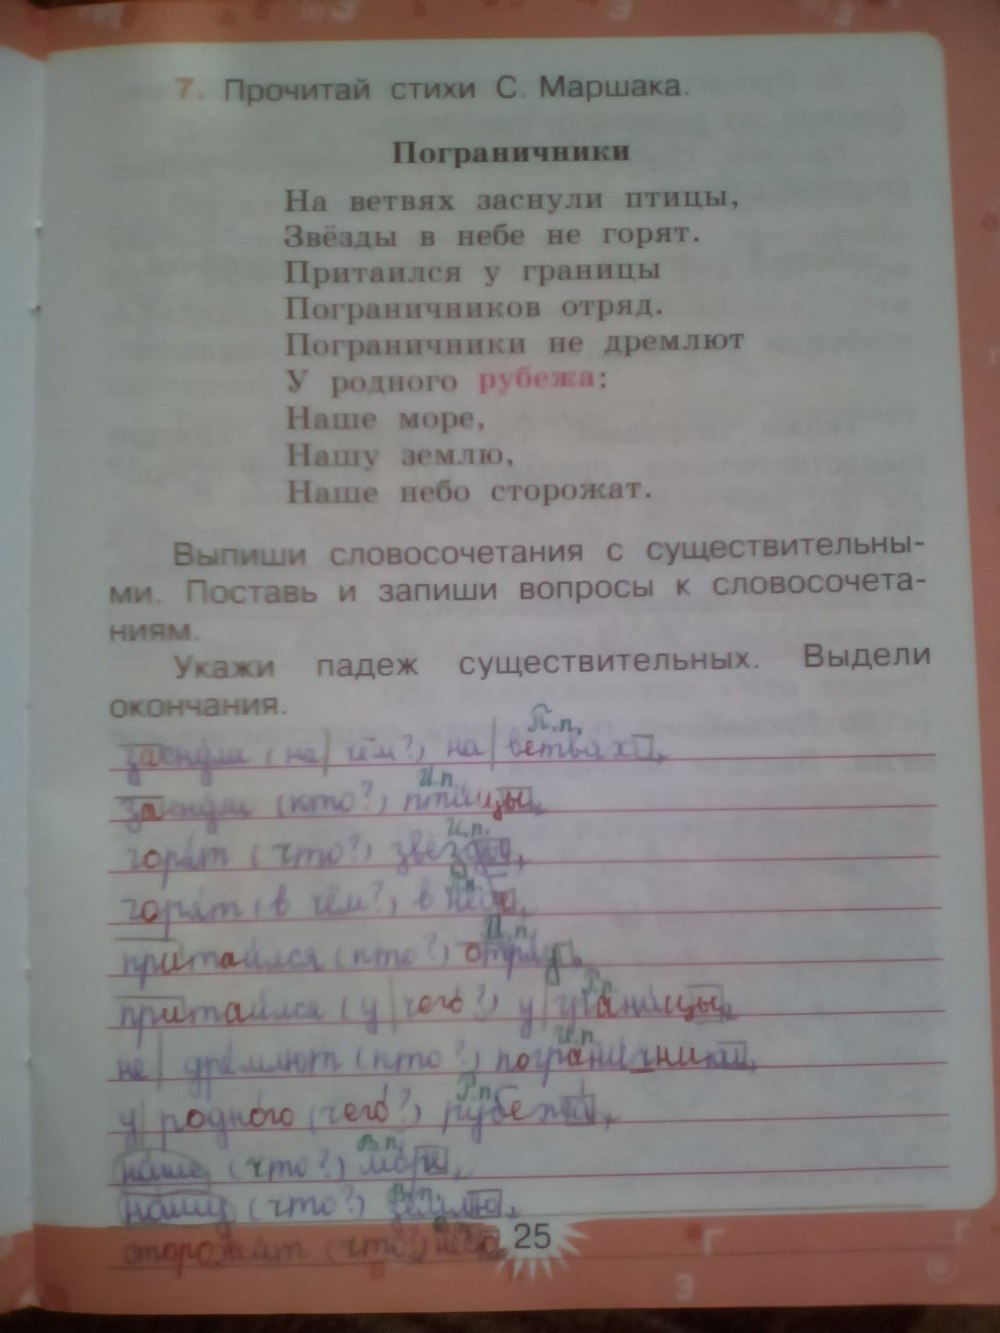 7. Прочитай стихи С. Маршака.
Пограничники
На ветвях заснули птицы,
Звёзды в небе не горят.
Притаился у границы
Пограничников отряд.
Пограничники не дремлют
У родного рубежа:
Наше море,
Нашу землю,
Наше небо сторожат.
Выпиши словосочетания с существительны-
ми. Поставь и запиши вопросы к словосочета-
ниям.
Укажи падеж существительных. Выдели
окончания.
П.п.
заснули (на| чём?) на| ветвях,
И.п.
заснули (кто?) птицы,
И.п.
горят (что?) звёзды,
горят (в чём?) в небе,
И.п.
притаился (кто?) отряд,
Р.п.
притаился (у| чего?) у| границы,
И.п.
не| дремлют (кто?) пограничники,
Р.п.
у| родного (чего?) рубежа,
В.п.
наше (что?) море,
В.п.
нашу (что?) землю,
сторожат (что?) небо,
25